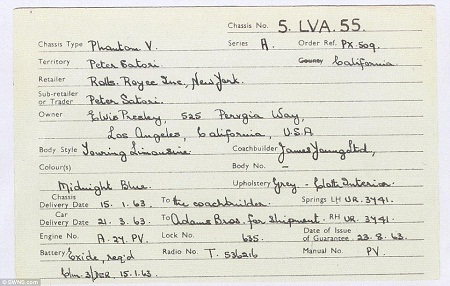 Chassis No. 5. LVA. 55.
Chassis Type Phantom V. Series A. Order Ref. PX.509.
Territory Peter Satori. County California
Retailer Rolls-Royce Inc, New York.
Sub-retailer or Trader Peter Satori.
Owner Elvis Presley, 525 Perugia Way,
Los Angeles, California, U.S.A
Body Style Touring Limousine Coachbuilder James Young Ltd,
Colour(s) Body No. -
Midnight Blue. Upholstery Grey - Cloth Interior.
Chassis Delivery Date 15. 1. 63. To the coachbuilder Springs LH UR. 3741.
Car Delivery Date 21. 3. 63. To Adams Bros. for shipment. RH UR. 3741.
Engine No. A. 27. PV. Lock No. 635. Date of Issue of Guarantee 23. 8. 63.
Battery Exide, req'd Radio No. T. 536216 Manual No. PV.
15.1.63.
© SWNS.com